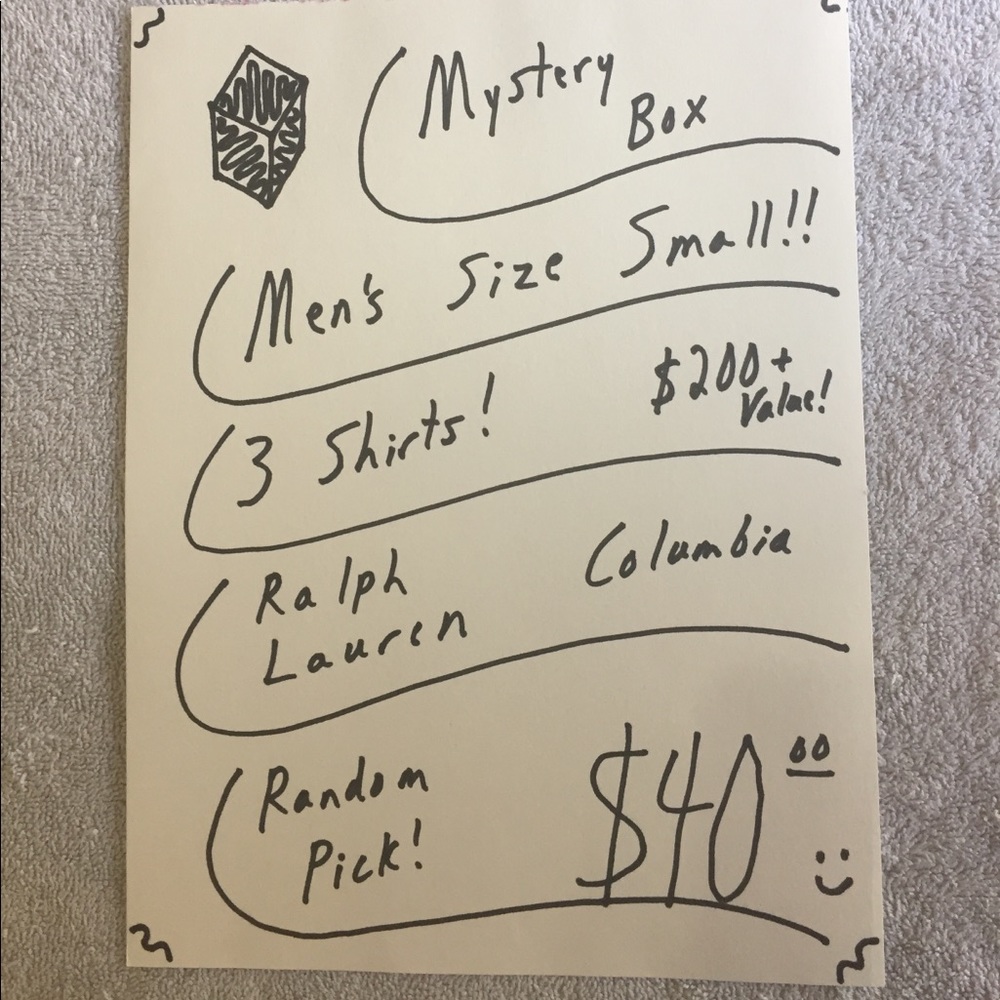 Mystery
Box
Men's Size Small!!
3 Shirts! $200+
Value!
Ralph Columbia
Lauren
Random $40 00
Pick!